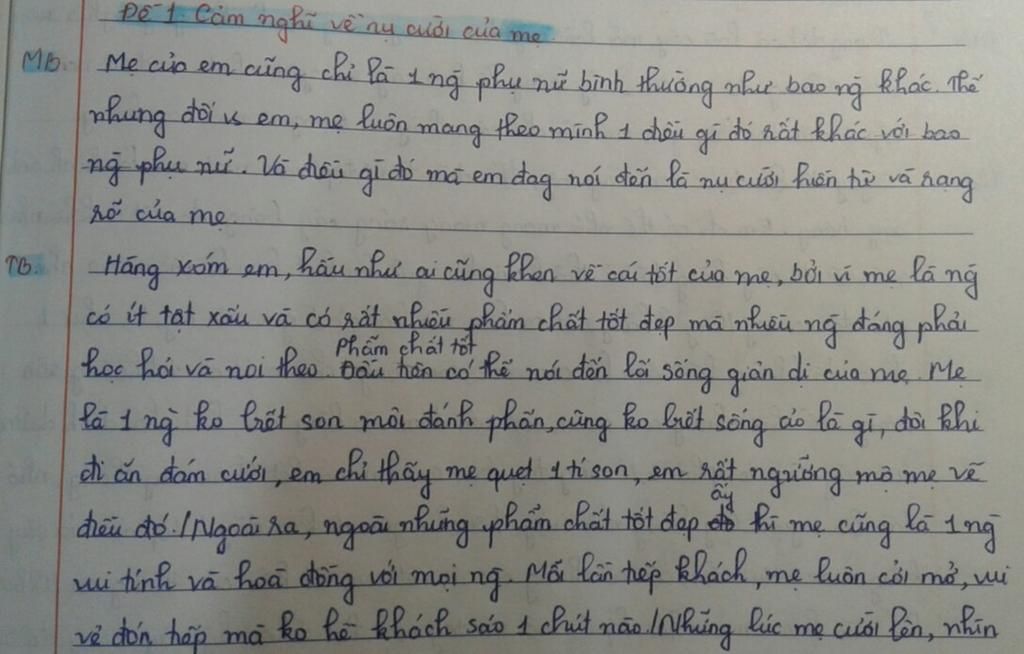 Đề 1. Cảm nghĩ về nụ cười của mẹ
MB. Mẹ của em cũng chỉ là 1 ng phụ nữ bình thường như bao ng khác. Thế
nhưng đối vs em, mẹ luôn mang theo mình 1 điều gì đó rất khác với bao
ng phụ nữ. Và điều gì đó mà em đag nói đến là nụ cười hiền từ và rạng
rỡ của mẹ.
TB. Hàng xóm em, hầu như ai cũng khen về cái tốt của mẹ, bởi vì mẹ là ng
có ít tật xấu và có rất nhiều phẩm chất tốt đẹp mà nhiều ng đáng phải
Phẩm chất tốt
học hỏi và noi theo. Đầu tiên có thể nói đến lối sống giản dị của mẹ. Mẹ
là 1 ng ko biết son môi đánh phấn, cũng ko biết sống ảo là gì, đôi khi
đi ăn đám cưới, em chỉ thấy mẹ quẹt 1 tí son, em rất ngưỡng mộ mẹ về
ấy
điều đó./Ngoài ra, ngoài những phẩm chất tốt đẹp đó thì mẹ cũng là 1 ng
vui tính và hoà đồng với mọi ng. Mỗi lần tiếp khách, mẹ luôn cởi mở, vui
vẻ đón tiếp mà ko hề khách sáo 1 chút nào./Những lúc mẹ cười lên, nhìn